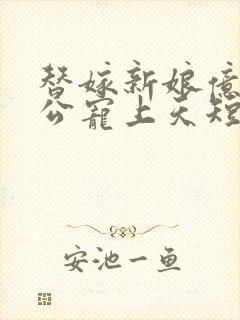 替嫁新娘億
公寵上天短
安池一鱼